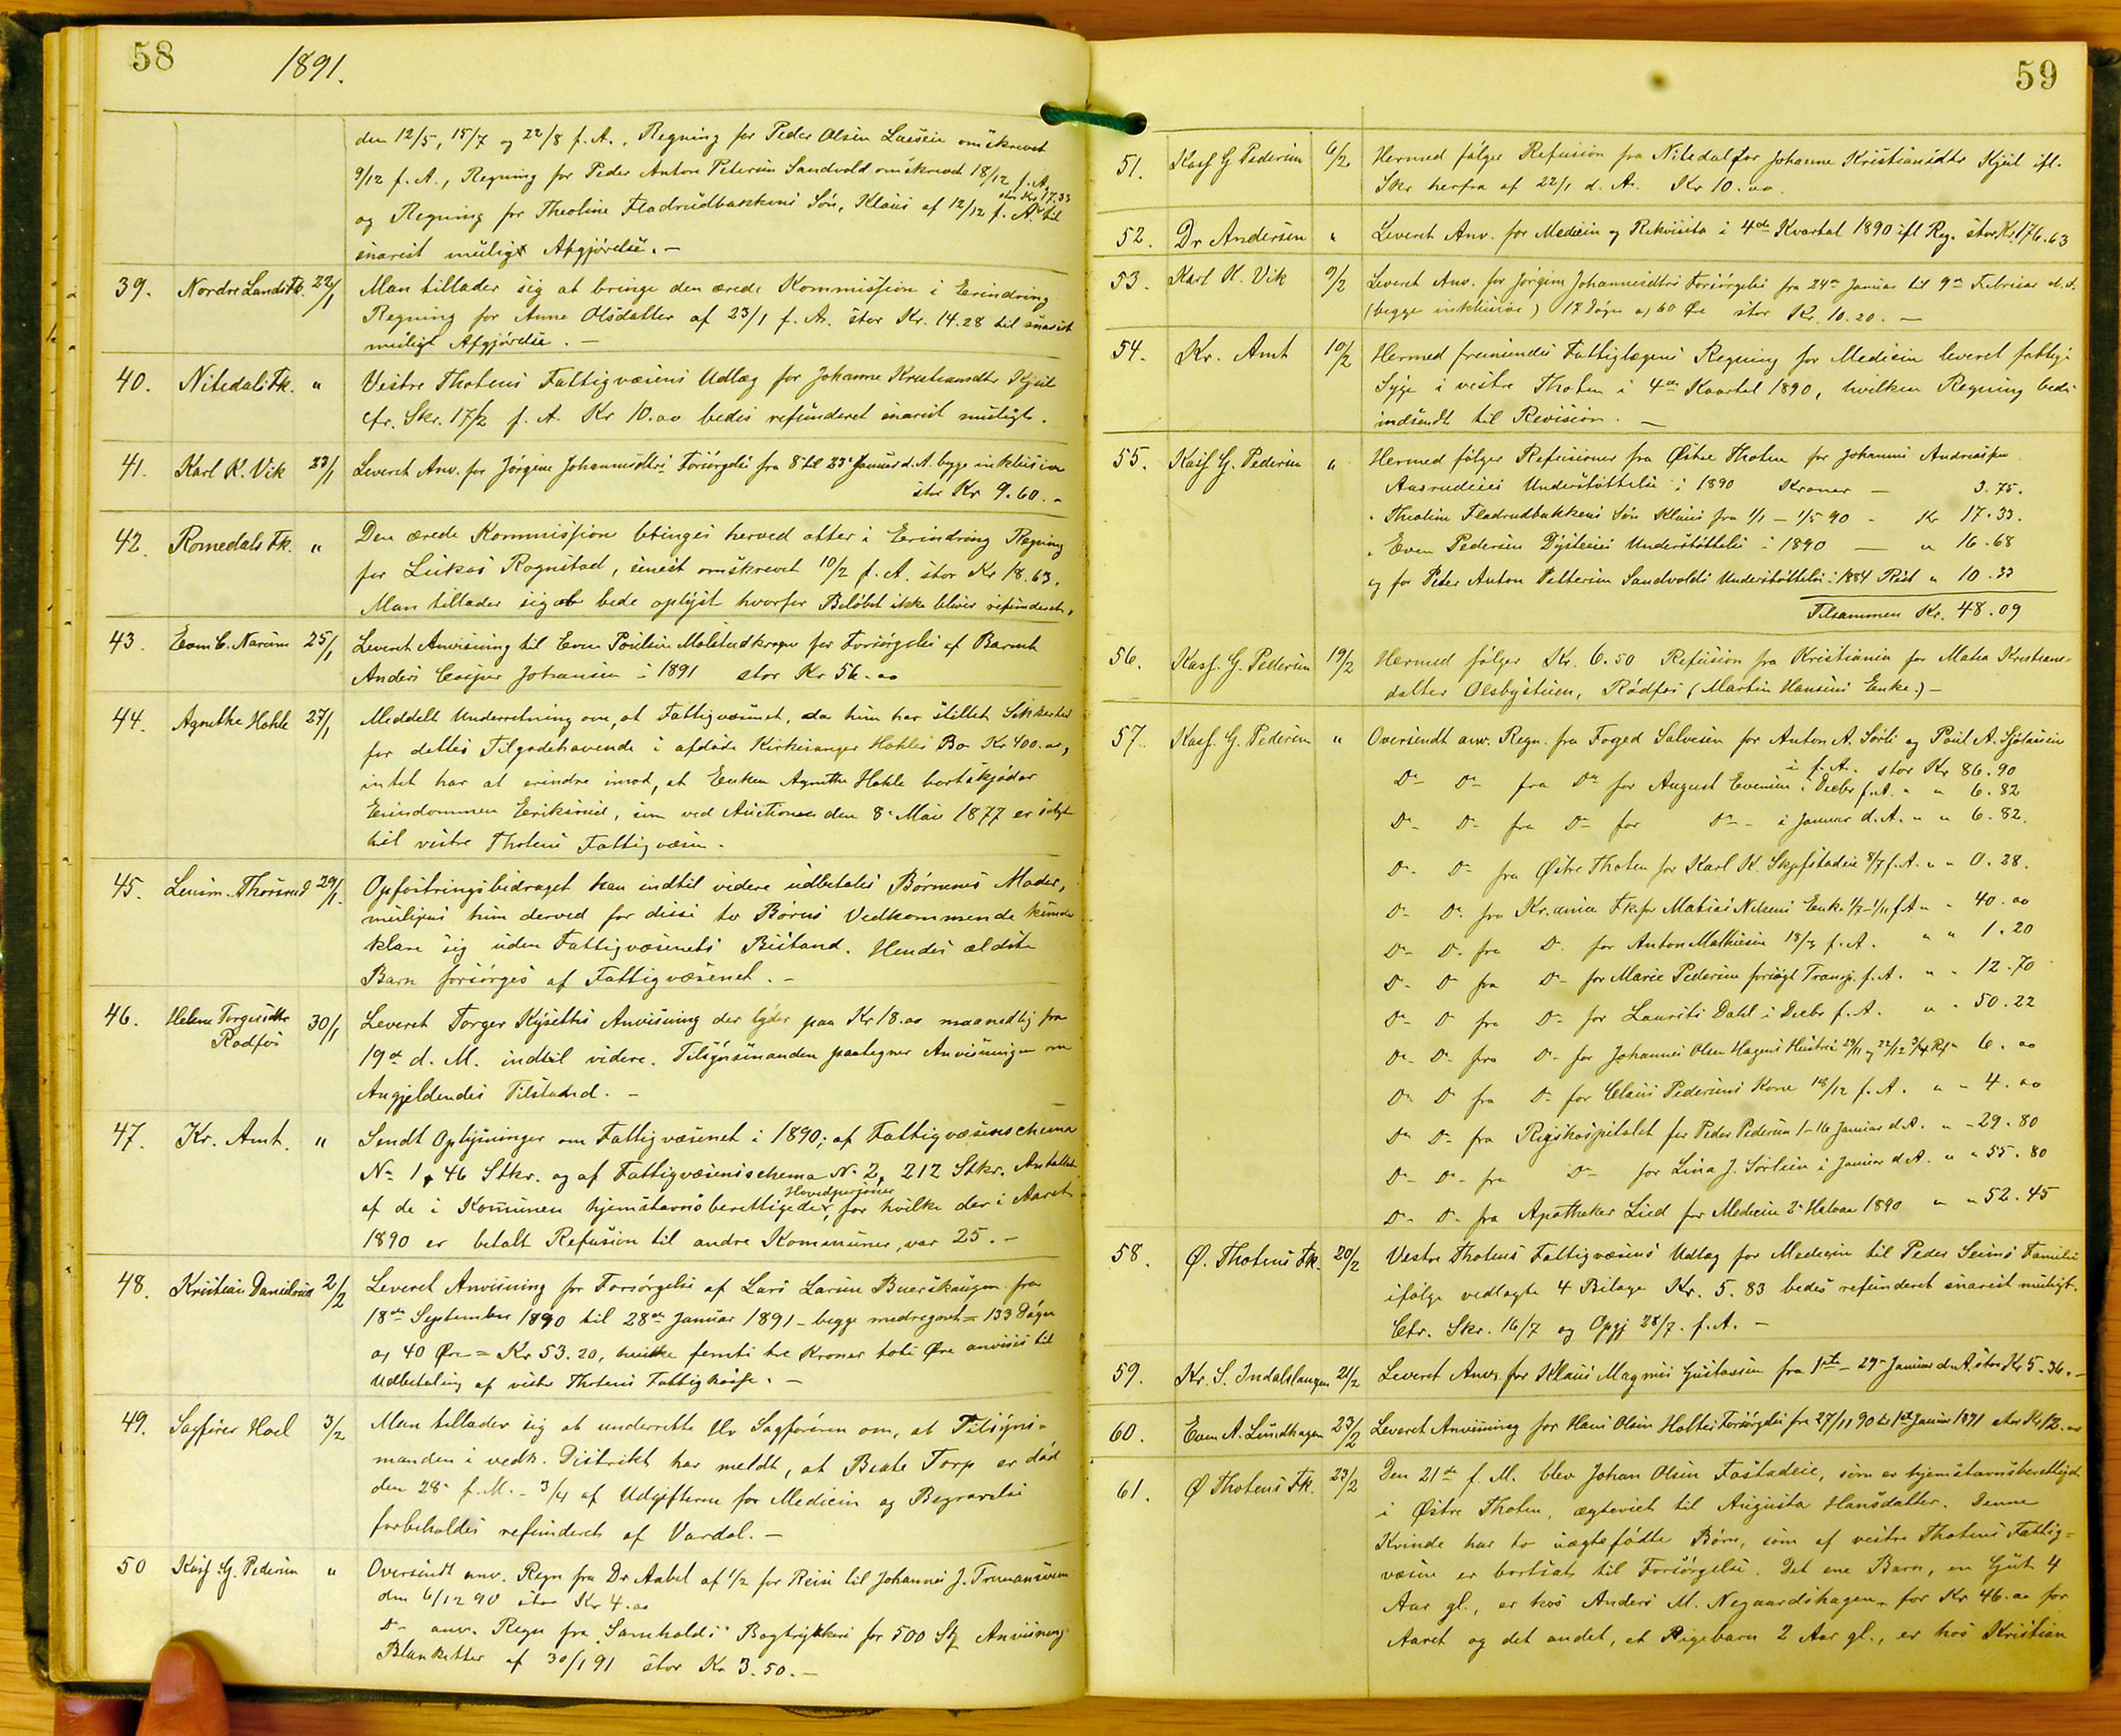 58
1891.
den 12/5, 15/7 og 22/8 f. A., Regning for Peder Olsen Læseie omskrevet
9/12 f. A., Regning for Peder Anton Petersen Sandvold omskrevet 18/12 f. A.
stor Kr 17.33
og Regning for Theoline Fladrudbakkens Søn, Klaus af 12/12 f. A. til
snarest muligt Afgjørelse. –
39. Nordre Lands Fk. 22/1 Man tillader sig at bringe den ærede Kommission i Erindring
Regning for Anne Olsdatter af 23/1 f. Ar. stor Kr. 14.28 til snarest
muligt Afgjørelse. –
40. Nitedals Fk. " Vestre Thotens Fattigvæsens Udlæg for Johanne Kristiansdtr Kjul
cfr. Skr. 17/2 f. A. Kr 10.00 bedes refunderet snarest muligt.
41. Karl K. Vik 23/1 Leveret Anv. for Jørgine Johannesdtrs Forsørgelse fra 8 til 23 Januar d. A. begge inklusive
stor Kr 9.60. –
42. Romedals Fk. " Den ærede Kommission bringes herved atter i Erindring Regning
for Lukas Rognstad, senest omskrevet 10/2 f. A. stor Kr 18.63.
Man tillader sig at bede oplyst hvorfor Beløbet ikke bliver refunderet.
43. Even C. Narum 25/1 Leveret Anvisning til Even Poulsen Molstadkragen for Forsørgelse af Barnet
Anders Casper Johansen i 1891 stor Kr 56.00
44. Agnethe Hohle 27/1 Meddelt Underretning om, at Fattigvæsenet, da hun har stillet Sikkerhed
for dettes Tilgodehavende i afdøde Kirkesanger Hohles Bo Kr 400.00,
intet har at erindre imod, at Enken Agnethe Hohle bortskjøder
Eiendommen Eriksrud, som ved Auctionen den 8 Mai 1877 er solgt
til vestre Thotens Fattigvæsen.
45. Lensm. Thorsrud 29/1. Opfostringsbidraget kan indtil videre udbetales Børnenes Moder,
muligens hun derved for disse to Børns Vedkommende kunde
klare sig uden Fattigvæsenets Bistand. Hendes ældste
Barn forsørges af Fattigvæsenet. –
46. Helene Torgersdtr
Rødfos 30/1 Leveret Torger Kyseths Anvisning der lyder paa Kr 18.00 maanedlig fra
19de d. M. indtil videre. Tilsynsmanden paategner Anvisningen om
Angjeldendes Tilstand. –
47. Kr. Amt. " Sendt Oplysninger om Fattigvæsenet i 1890; af Fattigvæsenschema
No 1, 46 Stkr. og af Fattigvæsenschema No 2, 212 Stkr. Antallet
Hovedpersoner
af de i Kommunen hjemstavnsberettigede, for hvilke der i Aaret
1890 er betalt Refusion til andre Kommuner, var 25. –
48. Kristian Danielsen 2/2 Leveret Anvisning for Forsørgelse af Lars Larsen Buerskaugen fra
18de September 1890 til 28de Januar 1891 – begge medregnet = 133 Døgn
a 40 Øre = Kr 53.20, hvilke femti tre Kroner tolv Øre anvises til
Udbetaling af vestre Thotens Fattigkasse. –
49. Sagfører Hoel 3/2 Man tillader sig at underrette Hr Sagføreren om, at Tilsyns-
manden i vedk. Distrikt har meldt, at Beate Torp er død
den 28 f. M. – 3/4 af Udgifterne for Medicin og Begravelse
forbeholdes refunderet af Vardal. –
50 Kasf G. Pedersen " Oversendt anv. Regn fra Dr Aabel af 1/2 for Reise til Johannes J.
den 6/12 90 stor Kr 4.00
Do anv. Regn fra "Samholds" Bogtrykkeri for 500 Stk Anvisnings
Blanketter af 30/1 91 stor Kr 3.50. –
59
51. Kasf G Pedersen 6/2 Hermed følger Refusion fra Nitedal for Johanne Kristiansdtr Kjul ifl.
Skr herfra af 22/1 d. Ar. Kr 10.00.
52. Dr Andersen " Leveret Anv. for Medicin og Rekvisita i 4de Kvartal 1890 ifl Reg. stor Kr. 176.63
53. Karl K. Vik 9/2 Leveret Anv. for Jørgine Johannesdtrs Forsørgelse fra 24de Januar til 9de Februar d. A.
(begge inklusive) 17 Døgn a 60 Øre stor Kr. 10.20. –
54. Kr. Amt 10/2 Hermed fremsendes Fattiglægens Regning for Medicin leveret fattige
Syge i vestre Thoten i 4de Kvartal 1890, hvilken Regning bedes
indsendt til Revision. –
55. Kasf G. Pedersen " Hermed følger Refusioner fra Østre Thoten for Johannes Andreassen
Aasrudeies Understøttelse i 1890 Kroner – 3.75.
" Theoline Fladrudbakkens Søn Klaus fra 1/1 – 1/5 90 – Kr 17.33.
" Even Pedersen Dysteeies Understøttelse i 1890 — " 16.68
og for Peder Anton Pettersen Sandvolds Understøttelse i 1884 Rest " 10.33
Tilsammen Kr. 48.09
56. Kasf. G. Pedersen 19/2 Hermed følger Kr. 6.50 Refusion fra Kristiania for Mathea Kristians-
datter Olsbystuen, Rødfos (Martin Hansens Enke.) –
57. Kasf. G. Pedersen " Oversendt anv. Regn. fra Foged Salvesen for Anton A. Sørli og Paul A. Sjølaseie
i f. A. stor Kr 86.90
Do Do fra Do for August Evensen i Decbr f. A. " " 6.82
Do Do fra Do for Do i Januar d. A. " " 6.82.
Do Do fra Østre Thoten for Karl K. Skjefstadeie 8/7 f. A. " " 0.28.
Do Do fra Kr.ania Fk. for Mathias Nilsens Enke 1/7–1/11 f A " " 40.00
Do Do fra Do for Anton Mathiesen 18/3 f. A. " " 1.20
Do Do fra Do for Marie Pedersen forsøgt Transp. f. A. " " 12.70
Do Do fra Do for Laurits Dahl i Decbr f. A. " " 50.22
Do Do fra Do for Johannes Olsen Hagens Hustru 29/11 og 22/12 " 6.00
Do Do fra Do for Claus Pedersens Kone 18/12 f. A. " " 4.00
Do Do fra Rigshospitalet for Peder Pedersen 1–16 Januar d. A. " " 29.80
Do Do fra Do for Lina J. Sørlien i Januar d A. " " 55.80
Do Do fra Apotheker Lied for Medicin 2 Halvaar 1890 " " 52.45
58. Ø. Thotens Fk. 20/2 Vestre Thotens Fattigvæsens Udlæg for Medicin til Peder Seims Familie
ifølge vedlagte 4 Bilage Kr. 5.83 bedes refunderet snarest muligt.
Cfr. Skr. 16/7 og Opgj 28/7. f. A. –
59. Kr. S. Indahlshaugen 21/2 Leveret Anv. for Klaus Magnus Gustavsen fra 1ste – 29 Januar d. A. stor Kr 5.36. –
60. Even A. Lundhagen 23/2 Leveret Anvisning for Hans Olsen Holtes Forsørgelse fra 27/11 90 til 1ste Januar 1891 stor Kr 12.00
61. Ø Thotens Fk. 23/2 Den 21de f. M. blev Johan Olsen Fostadeie, som er hjemstavnsberettiget
i Østre Thoten, ægteviet til Augusta Hansdatter. Denne
Kvinde har to uægtefødte Børn, som af vestre Thotens Fattig-
væsen er bortsat til Forsørgelse. Det ene Barn, en Gut 4
Aar gl., er hos Anders M. Negaardshagen for Kr 46.00 for
Aaret og det andet, et Pigebarn 2 Aar gl., er hos Kristian